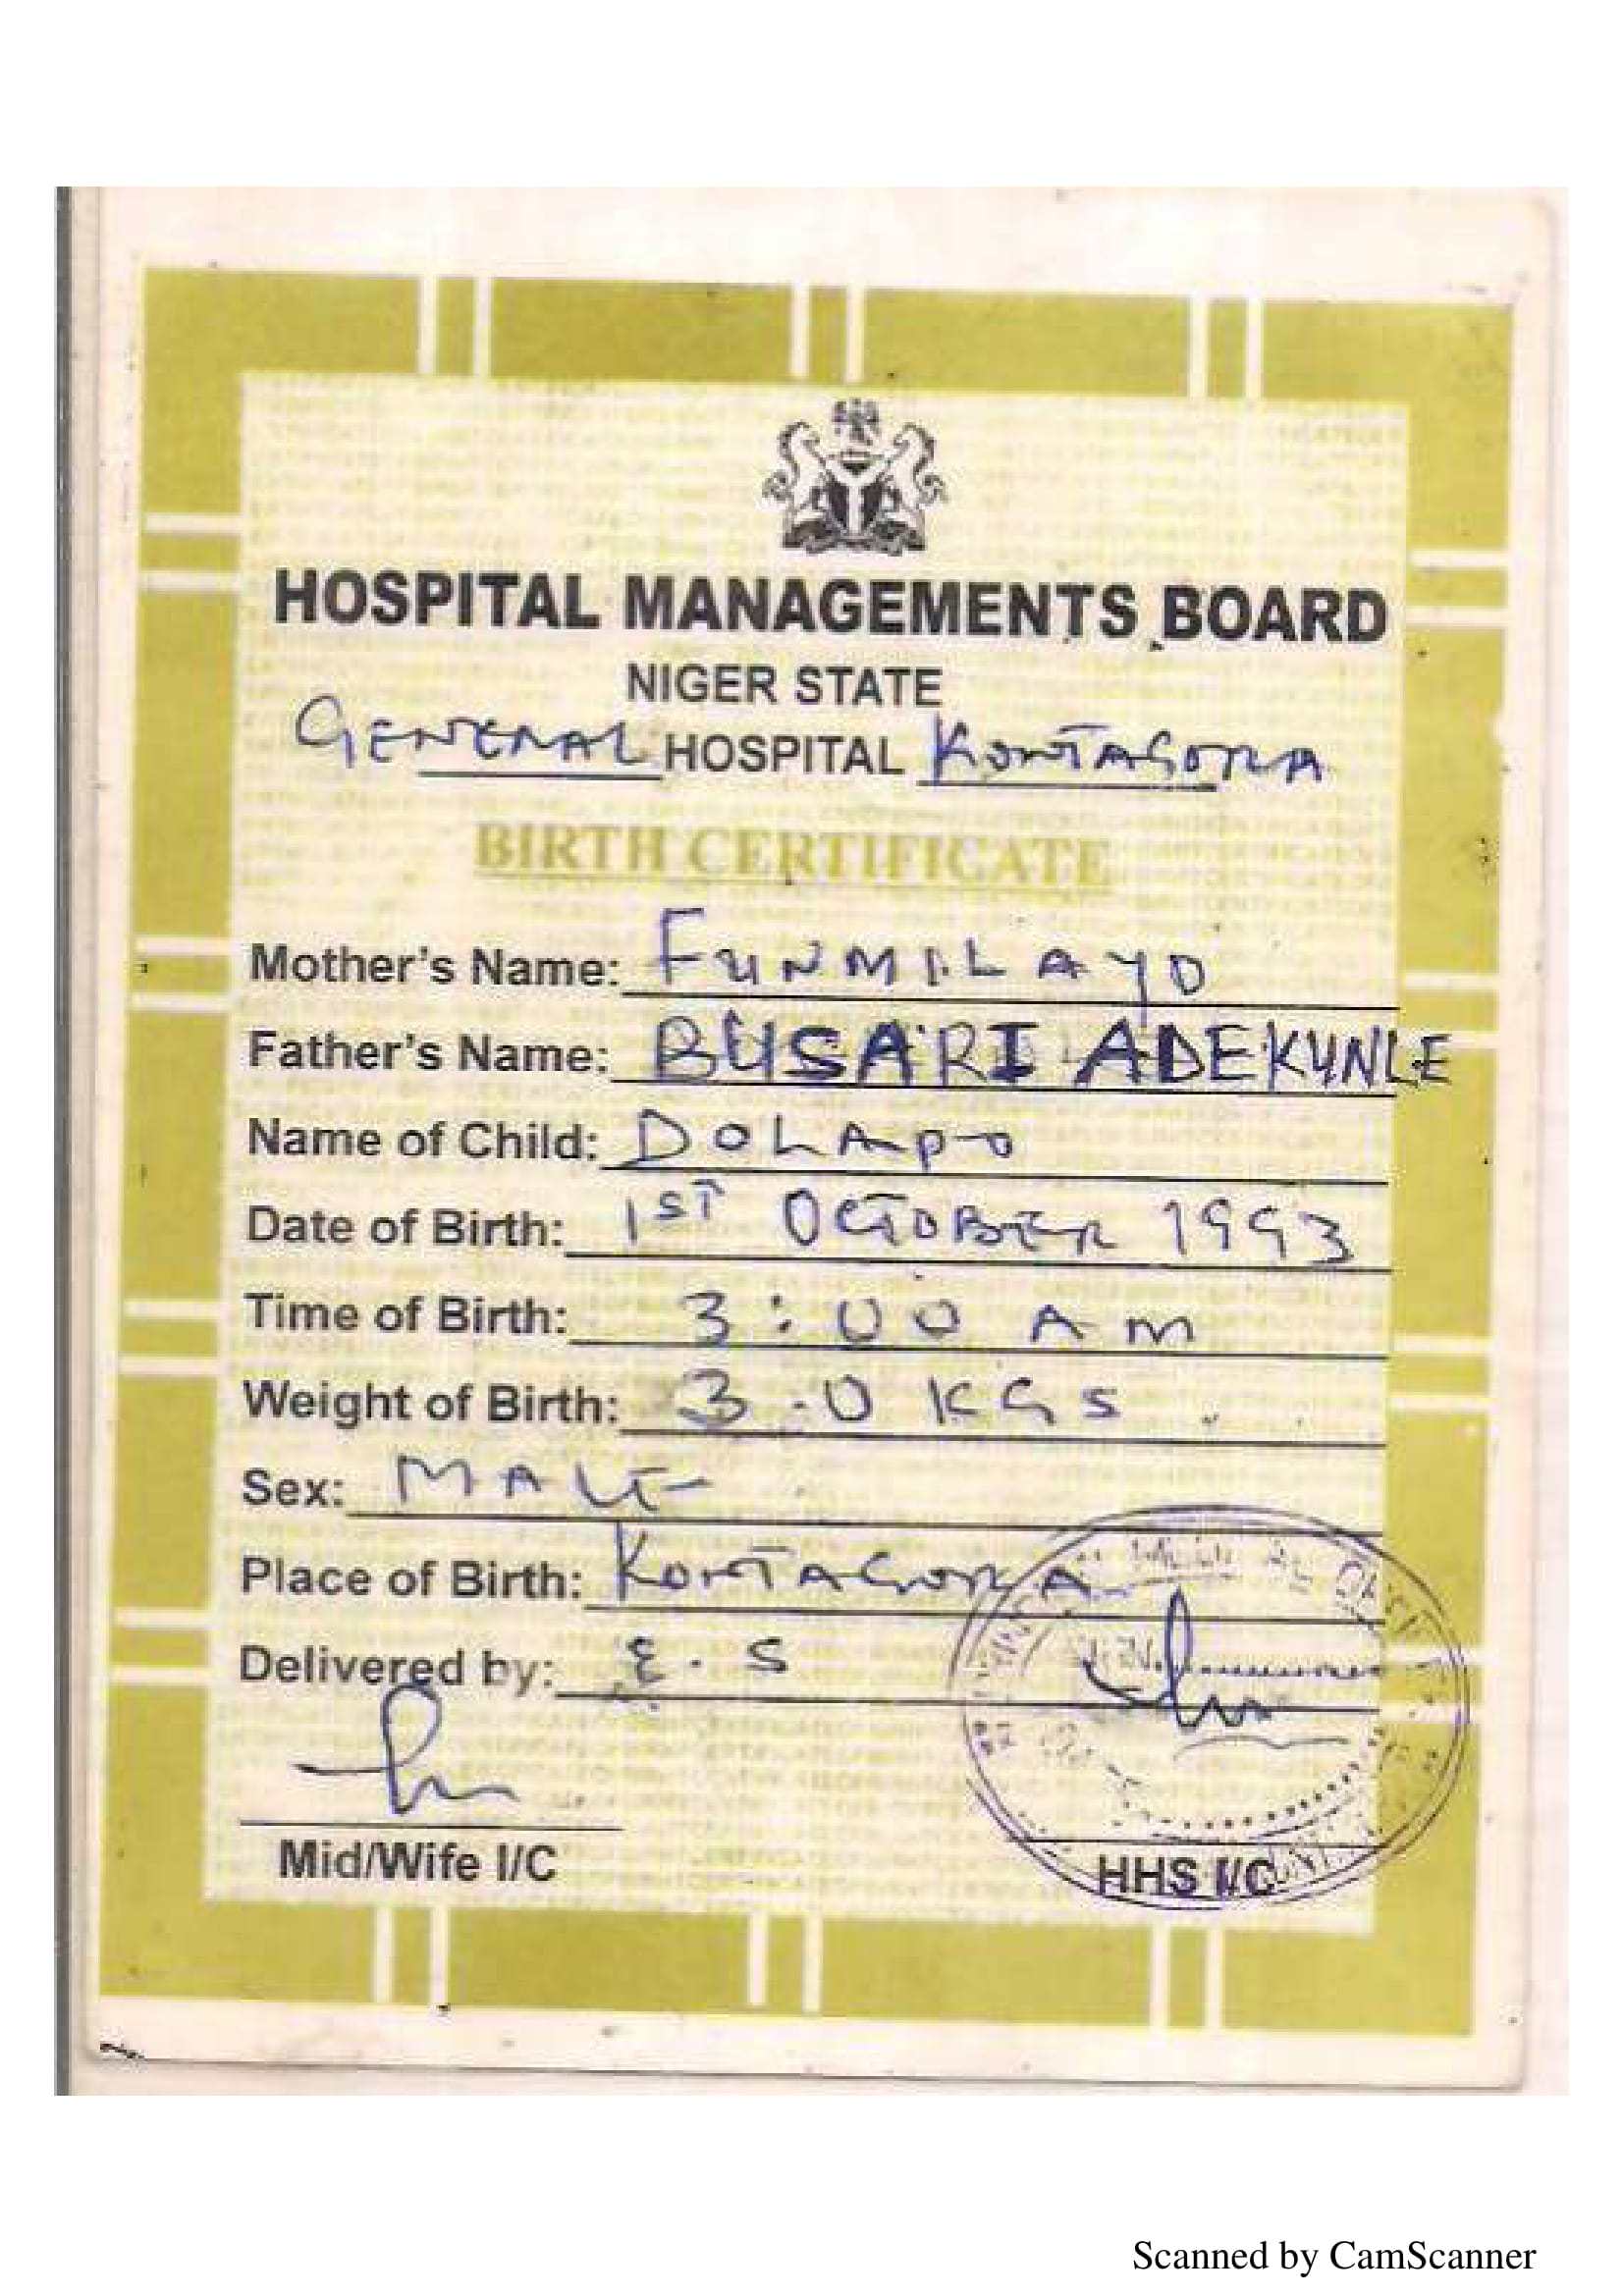 HOSPITAL MANAGEMENTS BOARD
NIGER STATE
GENERAL HOSPITAL KONTAGORA
BIRTH CERTIFICATE
Mother's Name: FUNMILAYO
Father's Name: BUSARI ADEKUNLE
Name of Child: DOLAPO
Date of Birth: 1ST OCTOBER 1993
Time of Birth: 3:00 AM
Weight of Birth: 3.0 KGS
Sex: MALE
Place of Birth: KONTAGORA
Delivered by: E.S
Mid/Wife I/C
HHS I/C
Scanned by CamScanner